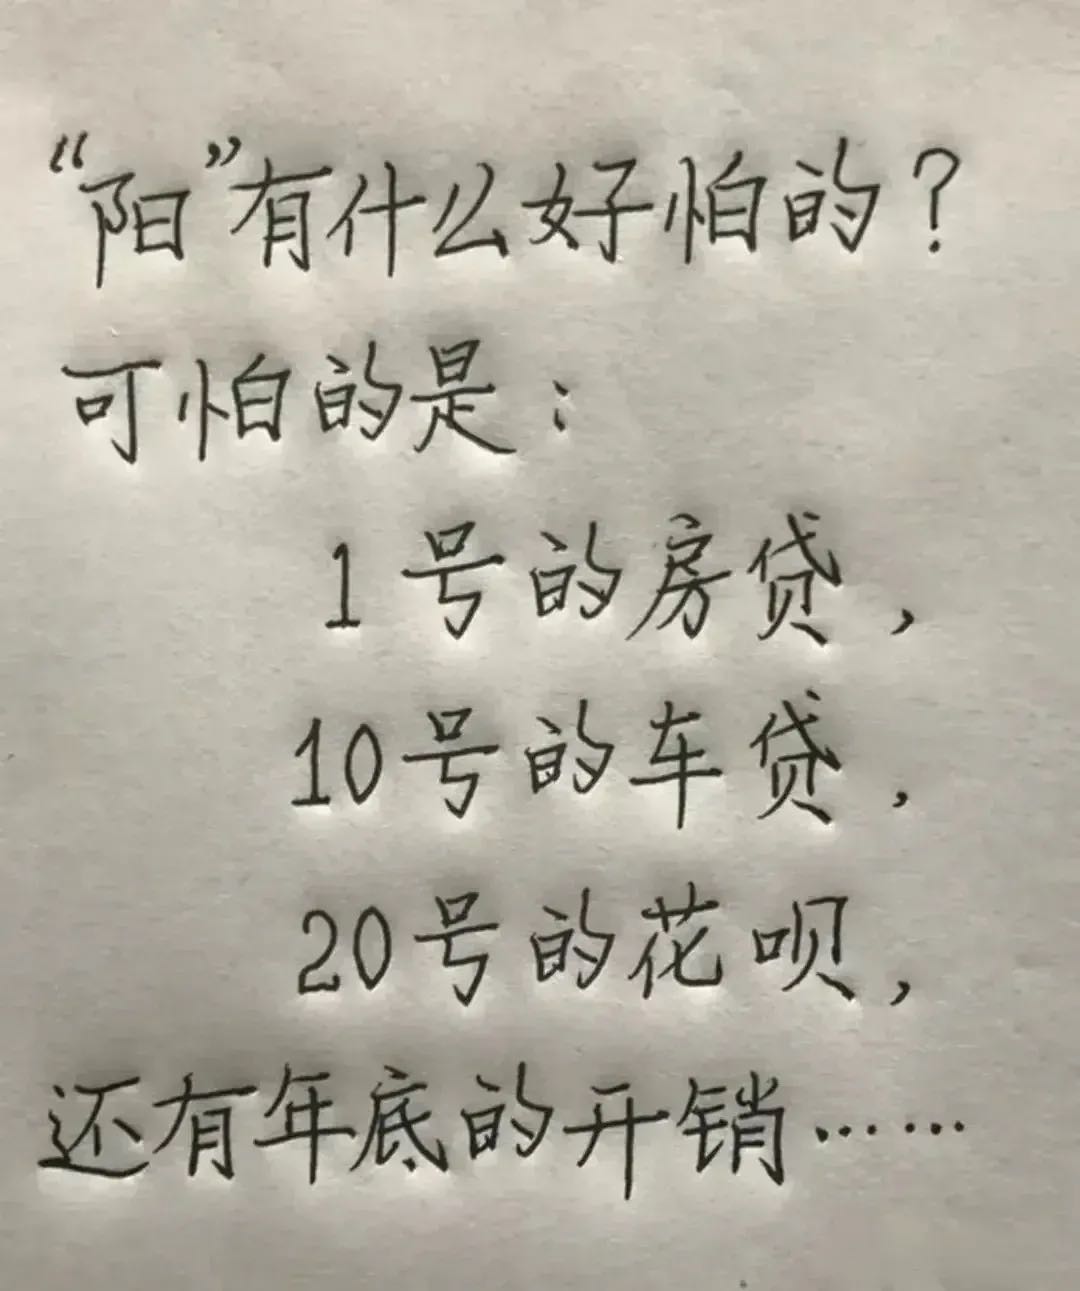 “阳”有什么好怕的？
可怕的是：
1号的房贷，
10号的车贷，
20号的花呗，
还有年底的开销……